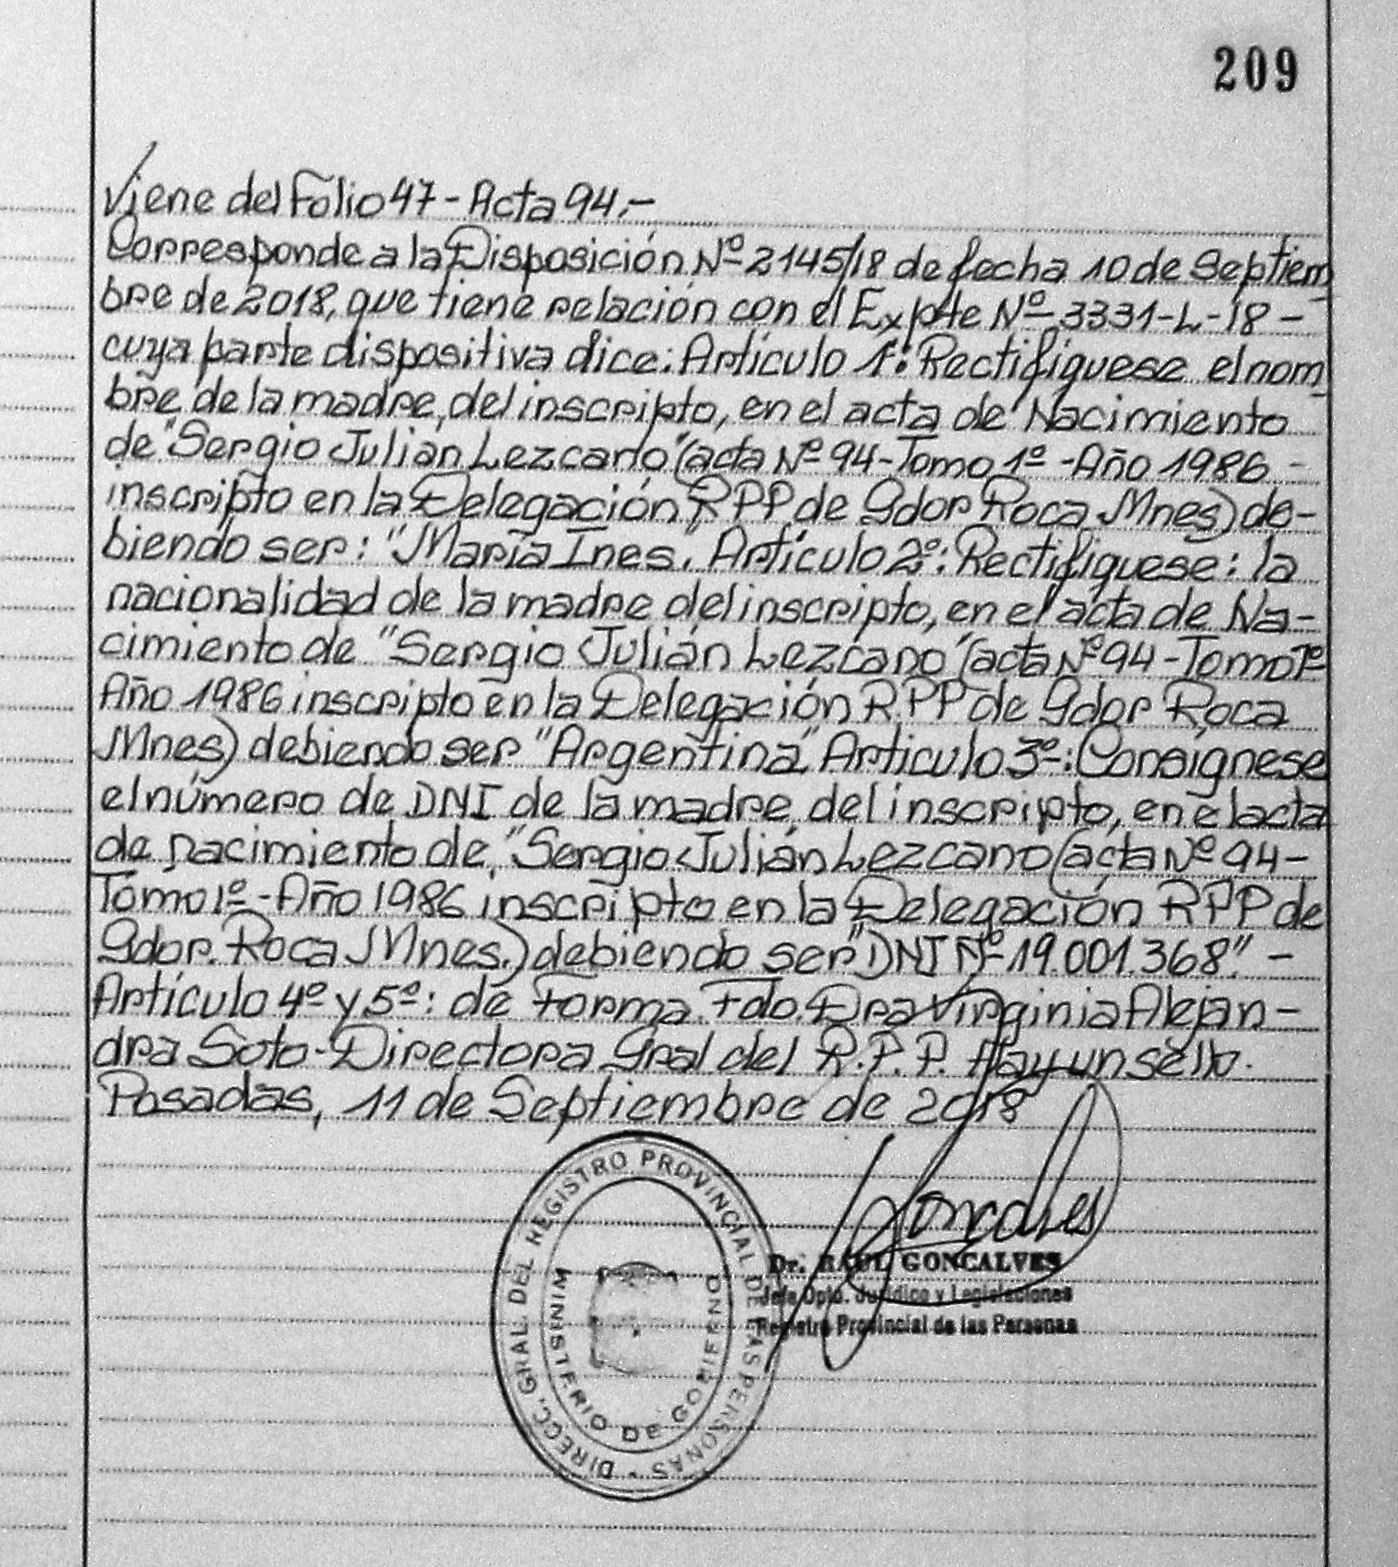 209
Viene del Folio 47 - Acta 94.-
Corresponde a la Disposición Nº 2145/18 de fecha 10 de Septiem
bre de 2018, que tiene relación con el Expte Nº 3331-L-18 -
cuya parte dispositiva dice: Artículo 1º: Rectifíquese el nom
bre de la madre del inscripto, en el acta de Nacimiento
de "Sergio Julián Lezcano" (acta Nº 94 - Tomo 1º - Año 1986 -
inscripto en la Delegación RPP de Gdor Roca Mnes) de-
biendo ser: "María Ines". Artículo 2º: Rectifíquese: la
nacionalidad de la madre del inscripto, en el acta de Na-
cimiento de "Sergio Julián Lezcano" (acta Nº 94 - Tomo 1º
Año 1986 inscripto en la Delegación R.PP de Gdor Roca
Mnes) debiendo ser "Argentina". Artículo 3º: Consígnese
el número de DNI de la madre del inscripto, en el acta
de nacimiento de, "Sergio Julián Lezcano (acta Nº 94 -
Tomo 1º - Año 1986 inscripto en la Delegación RPP de
Gdor. Roca Mnes.) debiendo ser "DNI Nº 19.001.368". -
Artículo 4º y 5º: de Forma. Fdo. Dra Virginia Alejan-
dra Soto - Directora Gral del R.P.P. Hay un sello.
Posadas, 11 de Septiembre de 2018
DIRECC. GRAL. DEL REGISTRO PROVINCIAL DE LAS PERSONAS
MINISTERIO DE GOBIERNO
Goncalves
Dr. RAUL GONCALVES
Jefe Dpto. Jurídico y Legislaciones
Registro Provincial de las Personas